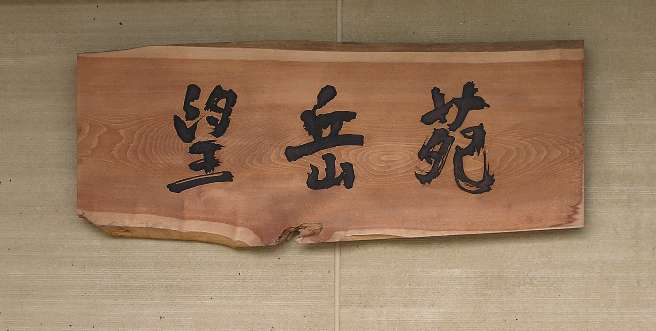 望岳苑